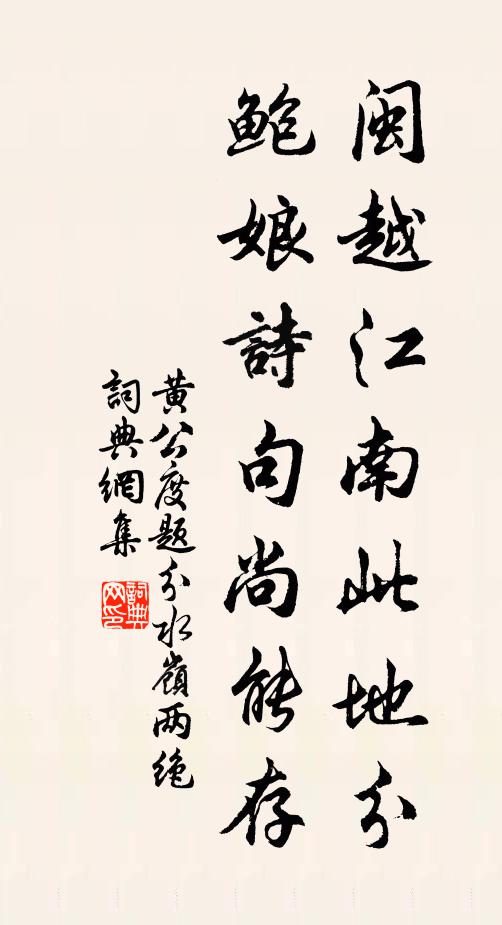 闽越江南此地分
鲍娘詩句尚能存
黄公度题分水嶺两绝
詞典網集
詞典
网印